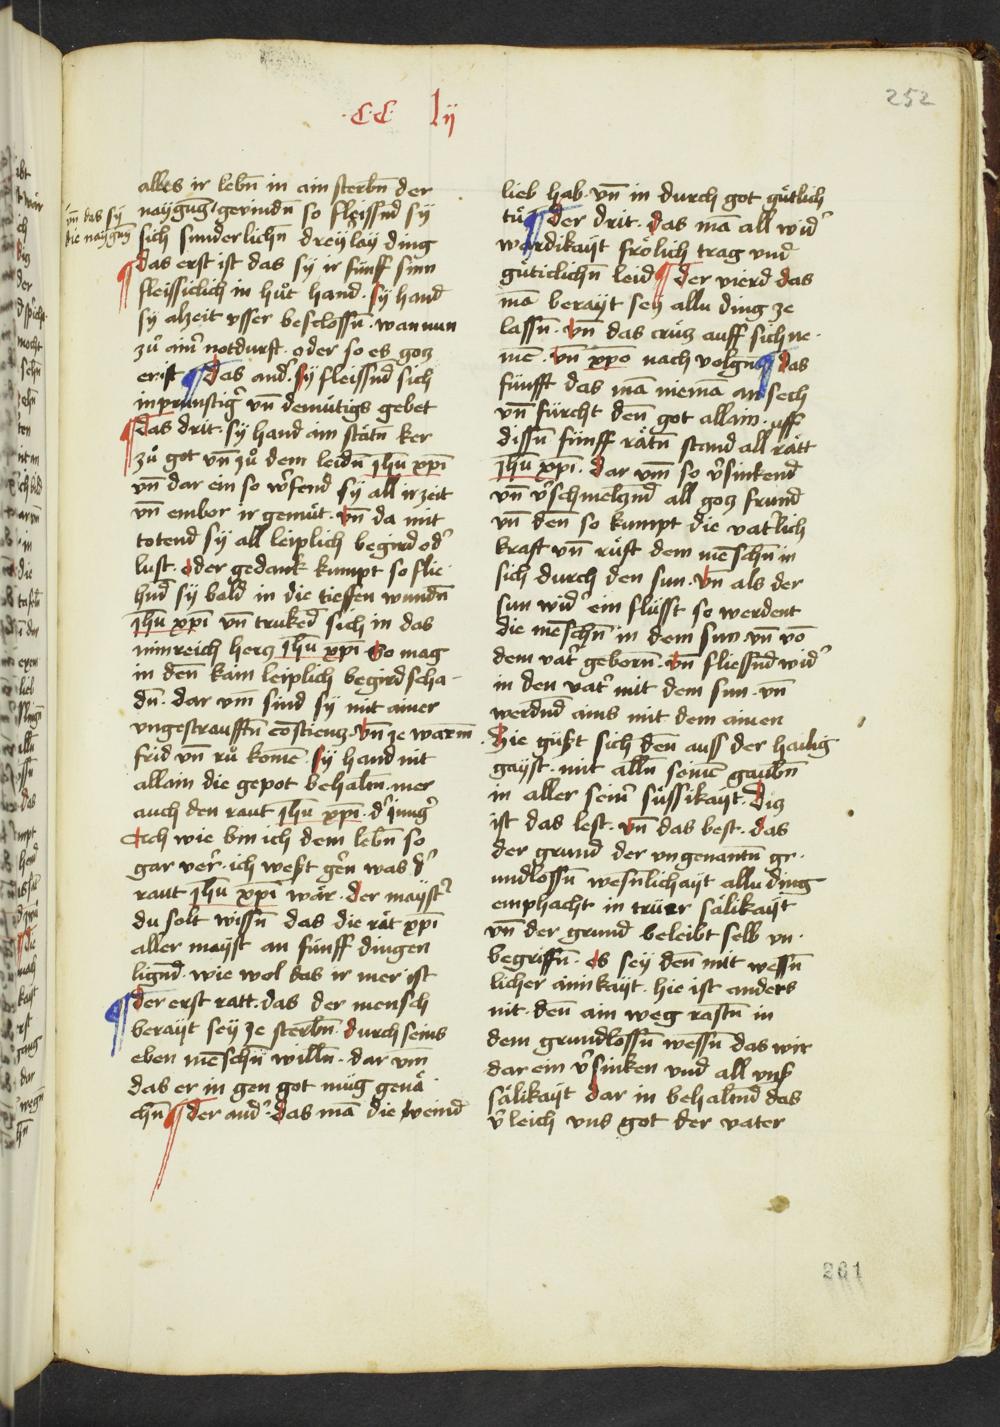 252
·C·C· lij
alles ir lebn̄ in ain sterbn̄ der
vn̄ das sy
die naygung
naygūg, gevindn̄ so fleissnd sy
sich sunderlichn̄ dreylay ding
¶ das erst ist das sy ir fúnff sinn
fleissiclich in hůt hand. sy hand
sy alzeit vsser beslossn̄. wan nun
zů ainr̄ notdurft. oder so es gotz
er ist ¶ das and. sy fleissnd sich
inprünstigr̄ vn̄ demütigs gebet
¶ das drit. sy hand ain stätn̄ ker
zů got vn̄ zů dem leidn̄ jhū xpī
vn̄ dar ein so w̓fend sy all ir zeit
vn̄ embor ir gemüt. vn̄ da mit
totend sy all leiplich begird od̓
lust. oder gedank kumpt so flie-
hnd sy bald in die tieffen wundn̄
jhū xpī vn̄ truked̄ sich in das
minreich hercz jhū xpī So mag
in den̄ kain leiplich begird scha-
dn̄. dar vm̄ sind sy mit ainer
vngestraufftn̄ cōsciencz. vn̄ ze warem
frid vn̄ rů komē. sy hand nit
allain die gepot behaltn̄. mer
auch den raut jhū xpī. d̓ jung̓
Ach wie bin ich dem lebn̄ so
gar ver̄. ich west gern̄ was d̓
raut jhū xpī wär. der mayst̓
du solt wissn̄ das die rät xpī
aller mayst an fúnff dingen
lignd. wie wol das ir mer ist
¶ der erst ratt. das der mensch
berayt sey ze sterbn̄. durch seins
eben mēschn̄ willn̄. dar vm̄
das er in gen got müg genä-
chn̄ ¶ der and̓. das mā die weind
lieb hab. vn̄ in durch got gütlich
tü ¶ der drit. das mā all wid̓
wärdikayt frölich trag vnd
güticlichn̄ leid ¶ der vierd das
mā berayt sey allu ding ze
lassn̄. vn̄ das crúcz auff sich ne-
mē. vn̄ xpo nach volgn̄ ¶ das
fúnfft das mā niemā an sech
vn̄ fürcht den̄ got allain. uff
dissn̄ fúnff rätn̄ stand all rätt
jhū xpī. dar vm̄ so v̓sinkend
vn̄ v̓schmelcznd all gotz frund
vn̄ den̄ so kumpt die vat̓lich
kraft vn̄ rüft dem mēschn̄ in
sich durch den sun. vn̄ als der
sun wid̓ ein flüsst so werdent
die mēschn̄ in dem sun vn̄ vō
dem vat̓ geborn̄. vn̄ fliessnd wid̓
in den vat̓ mit dem sun. vn̄
werdnd ains mit dem ainen
Hie güßt sich den̄ auss der hailig
gayst. mit alln̄ seinē gaubn̄
in aller seinr̄ süssikayt. Dis
ist das lest. vn̄ das best. das
der grund der vngenantn̄ gr-
undlossn̄ wesnlichayt allu ding
emphacht in trüer sälikayt
vn̄ der grund beleibt selb vn-
begriffn̄. es sey den̄ mit wessn̄
licher ainikayt. hie ist anders
nit. den̄ ain weg rastn̄ in
dem grundlossn̄ wessn̄ das wir
dar ein v̓sinken vnd all vnß
sälikayt dar in behaltnd das
v̓leich vns got der vater
261